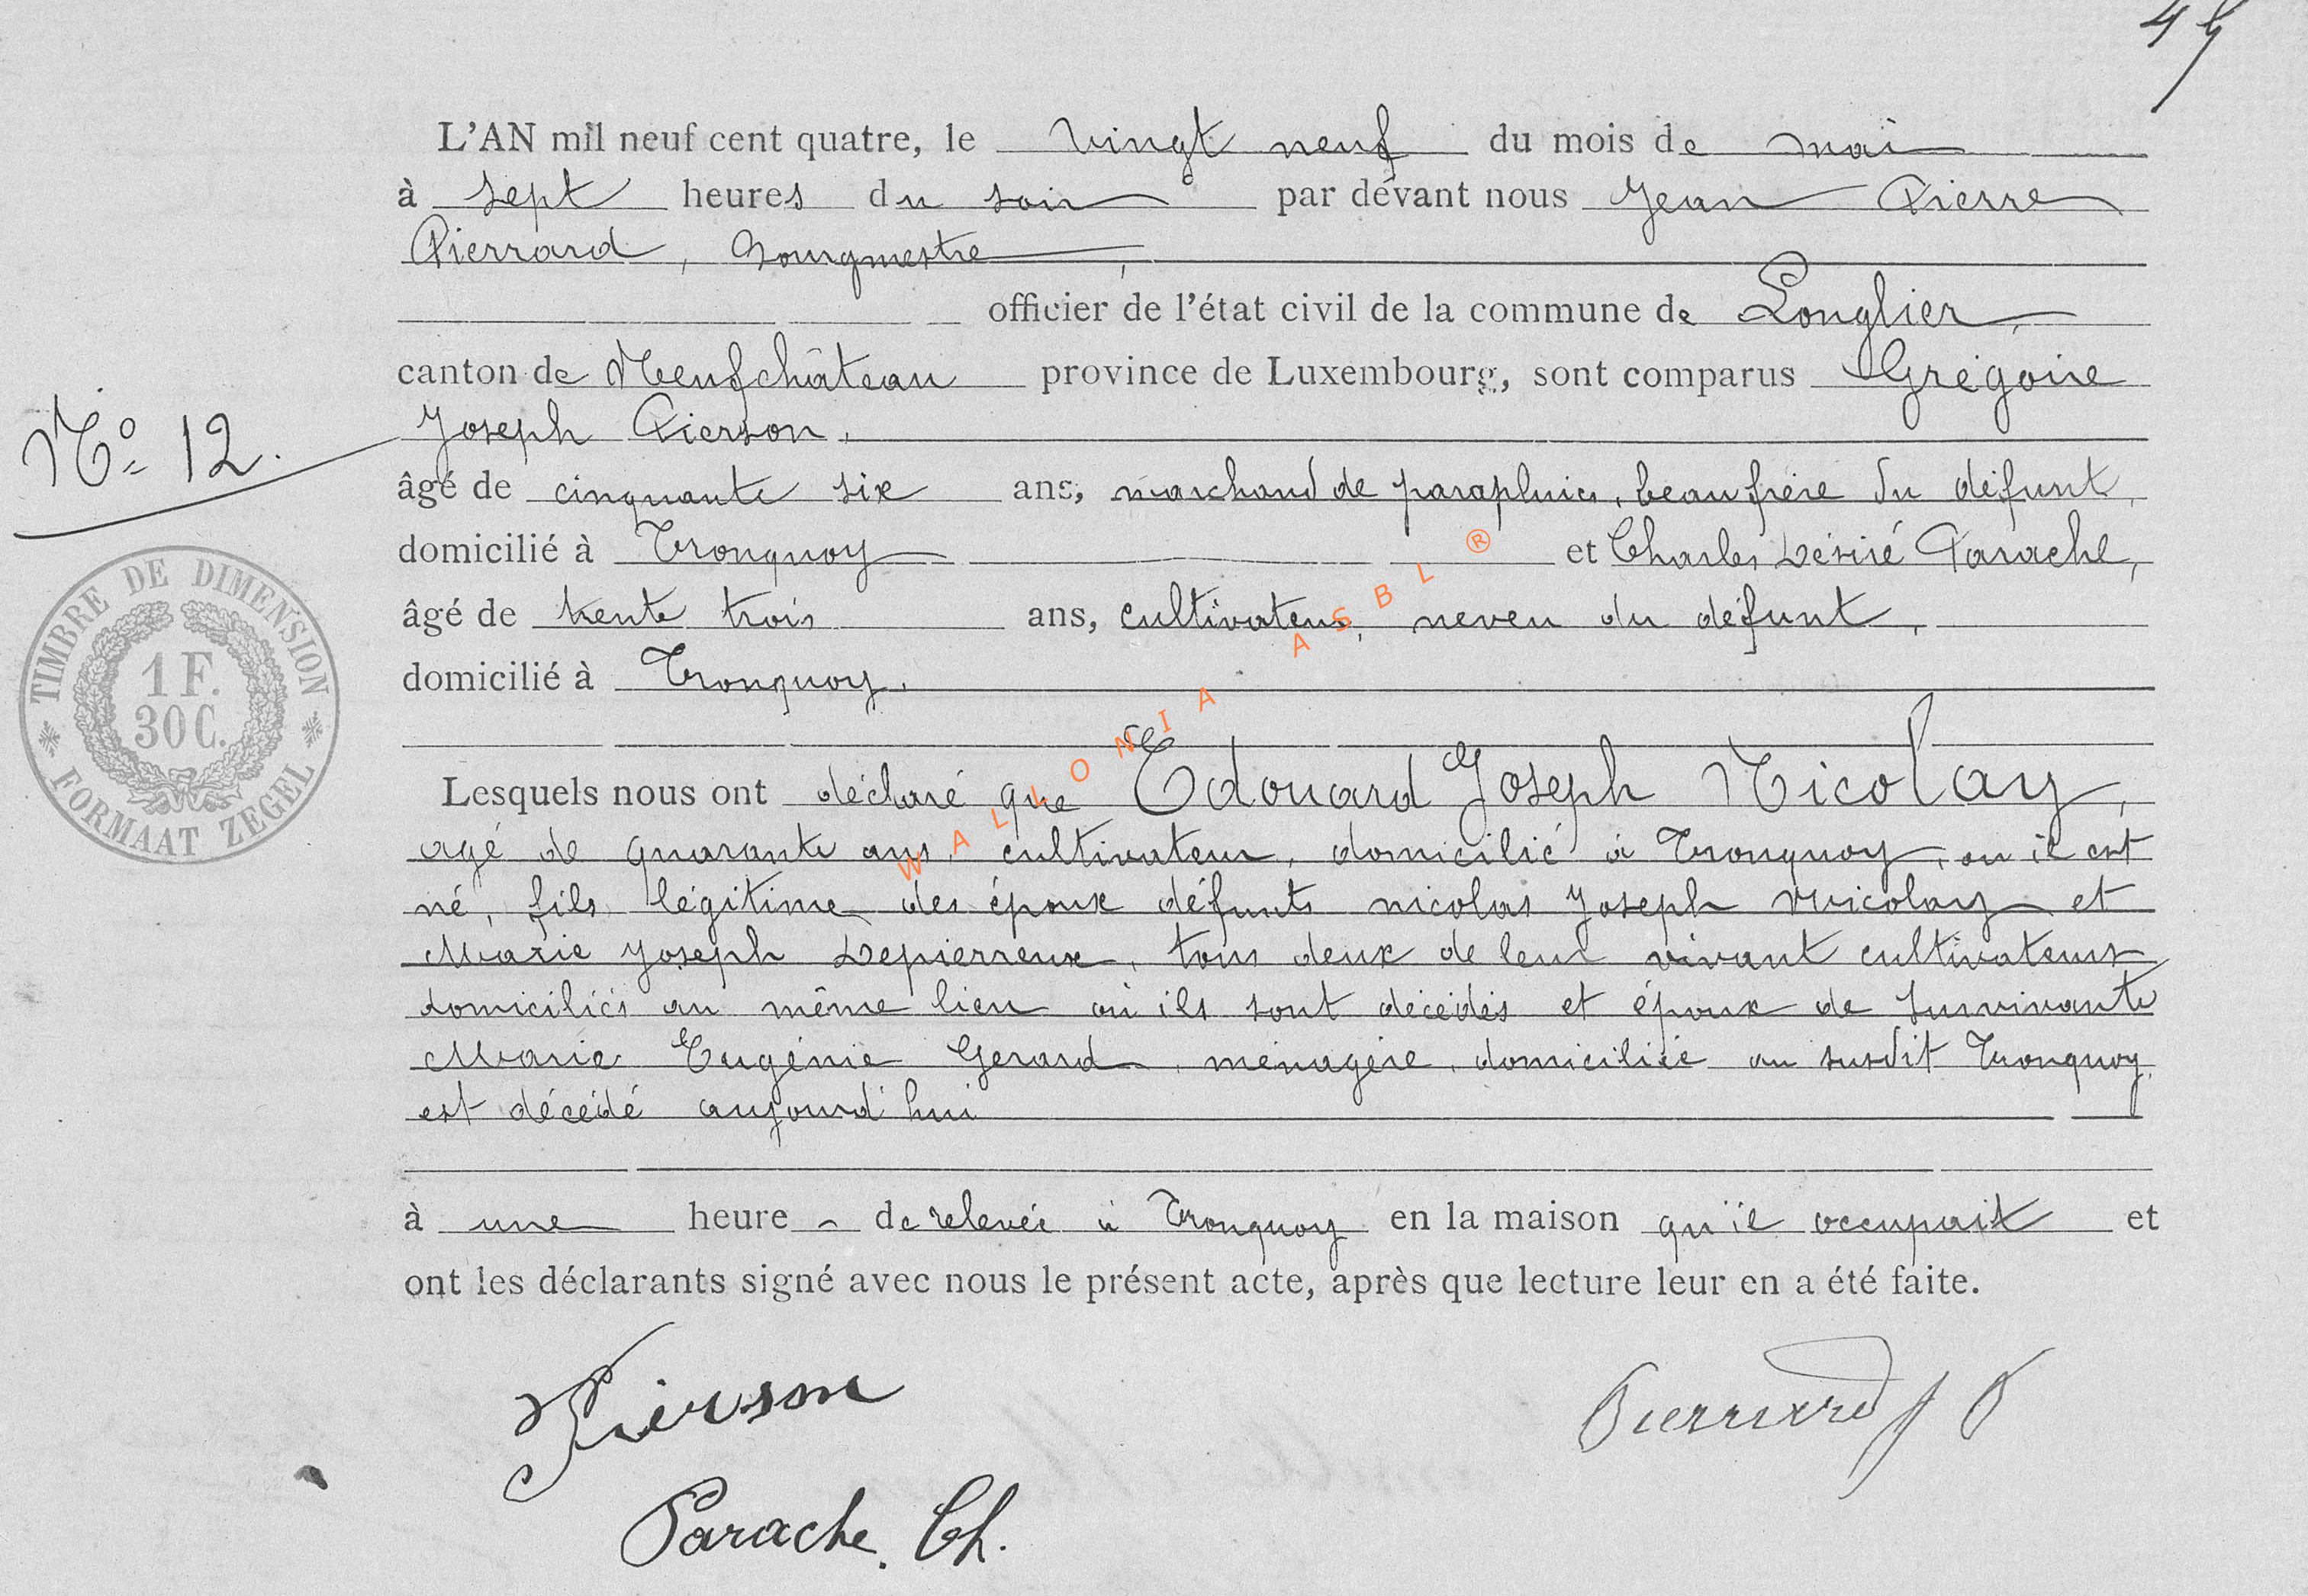 45
L'AN mil neuf cent quatre, le vingt neuf du mois de mai
à sept heures du soir par devant nous Jean Pierre
Pierrard, bourgmestre,
officier de l'état civil de la commune de Longlier,
canton de Neufchâteau province de Luxembourg, sont comparus Grégoire
Joseph Pierson,
N° 12.
âgé de cinquante six ans, marchand de parapluies, beau frère du défunt,
domicilié à Tronquoy et Charles Désiré Parache,
âgé de trente trois ans, cultivateur, neveu du défunt,
domicilié à Tronquoy.
TIMBRE DE DIMENSION
1 F.
30 C.
FORMAAT ZEGEL
Lesquels nous ont déclaré que Edouard Joseph Nicolay,
agé de quarante ans, cultivateur, domicilié à Tronquoy, ou il est
né, fils légitime des époux défunts nicolas Joseph Nicolay et
Marie Joseph Depierreux, tous deux de leur vivant cultivateurs
domiciliés au même lieu où ils sont décédés et époux de survivante
Marie Eugénie Gerard, ménagère, domiciliée au susdit Tronquoy,
est décédé aujourd'hui
à une heure de relevée à Tronquoy en la maison qu'il occupait et
ont les déclarants signé avec nous le présent acte, après que lecture leur en a été faite.
Pierson
Pierrard J P
Parache. Ch.
WALLONIA ASBL ®